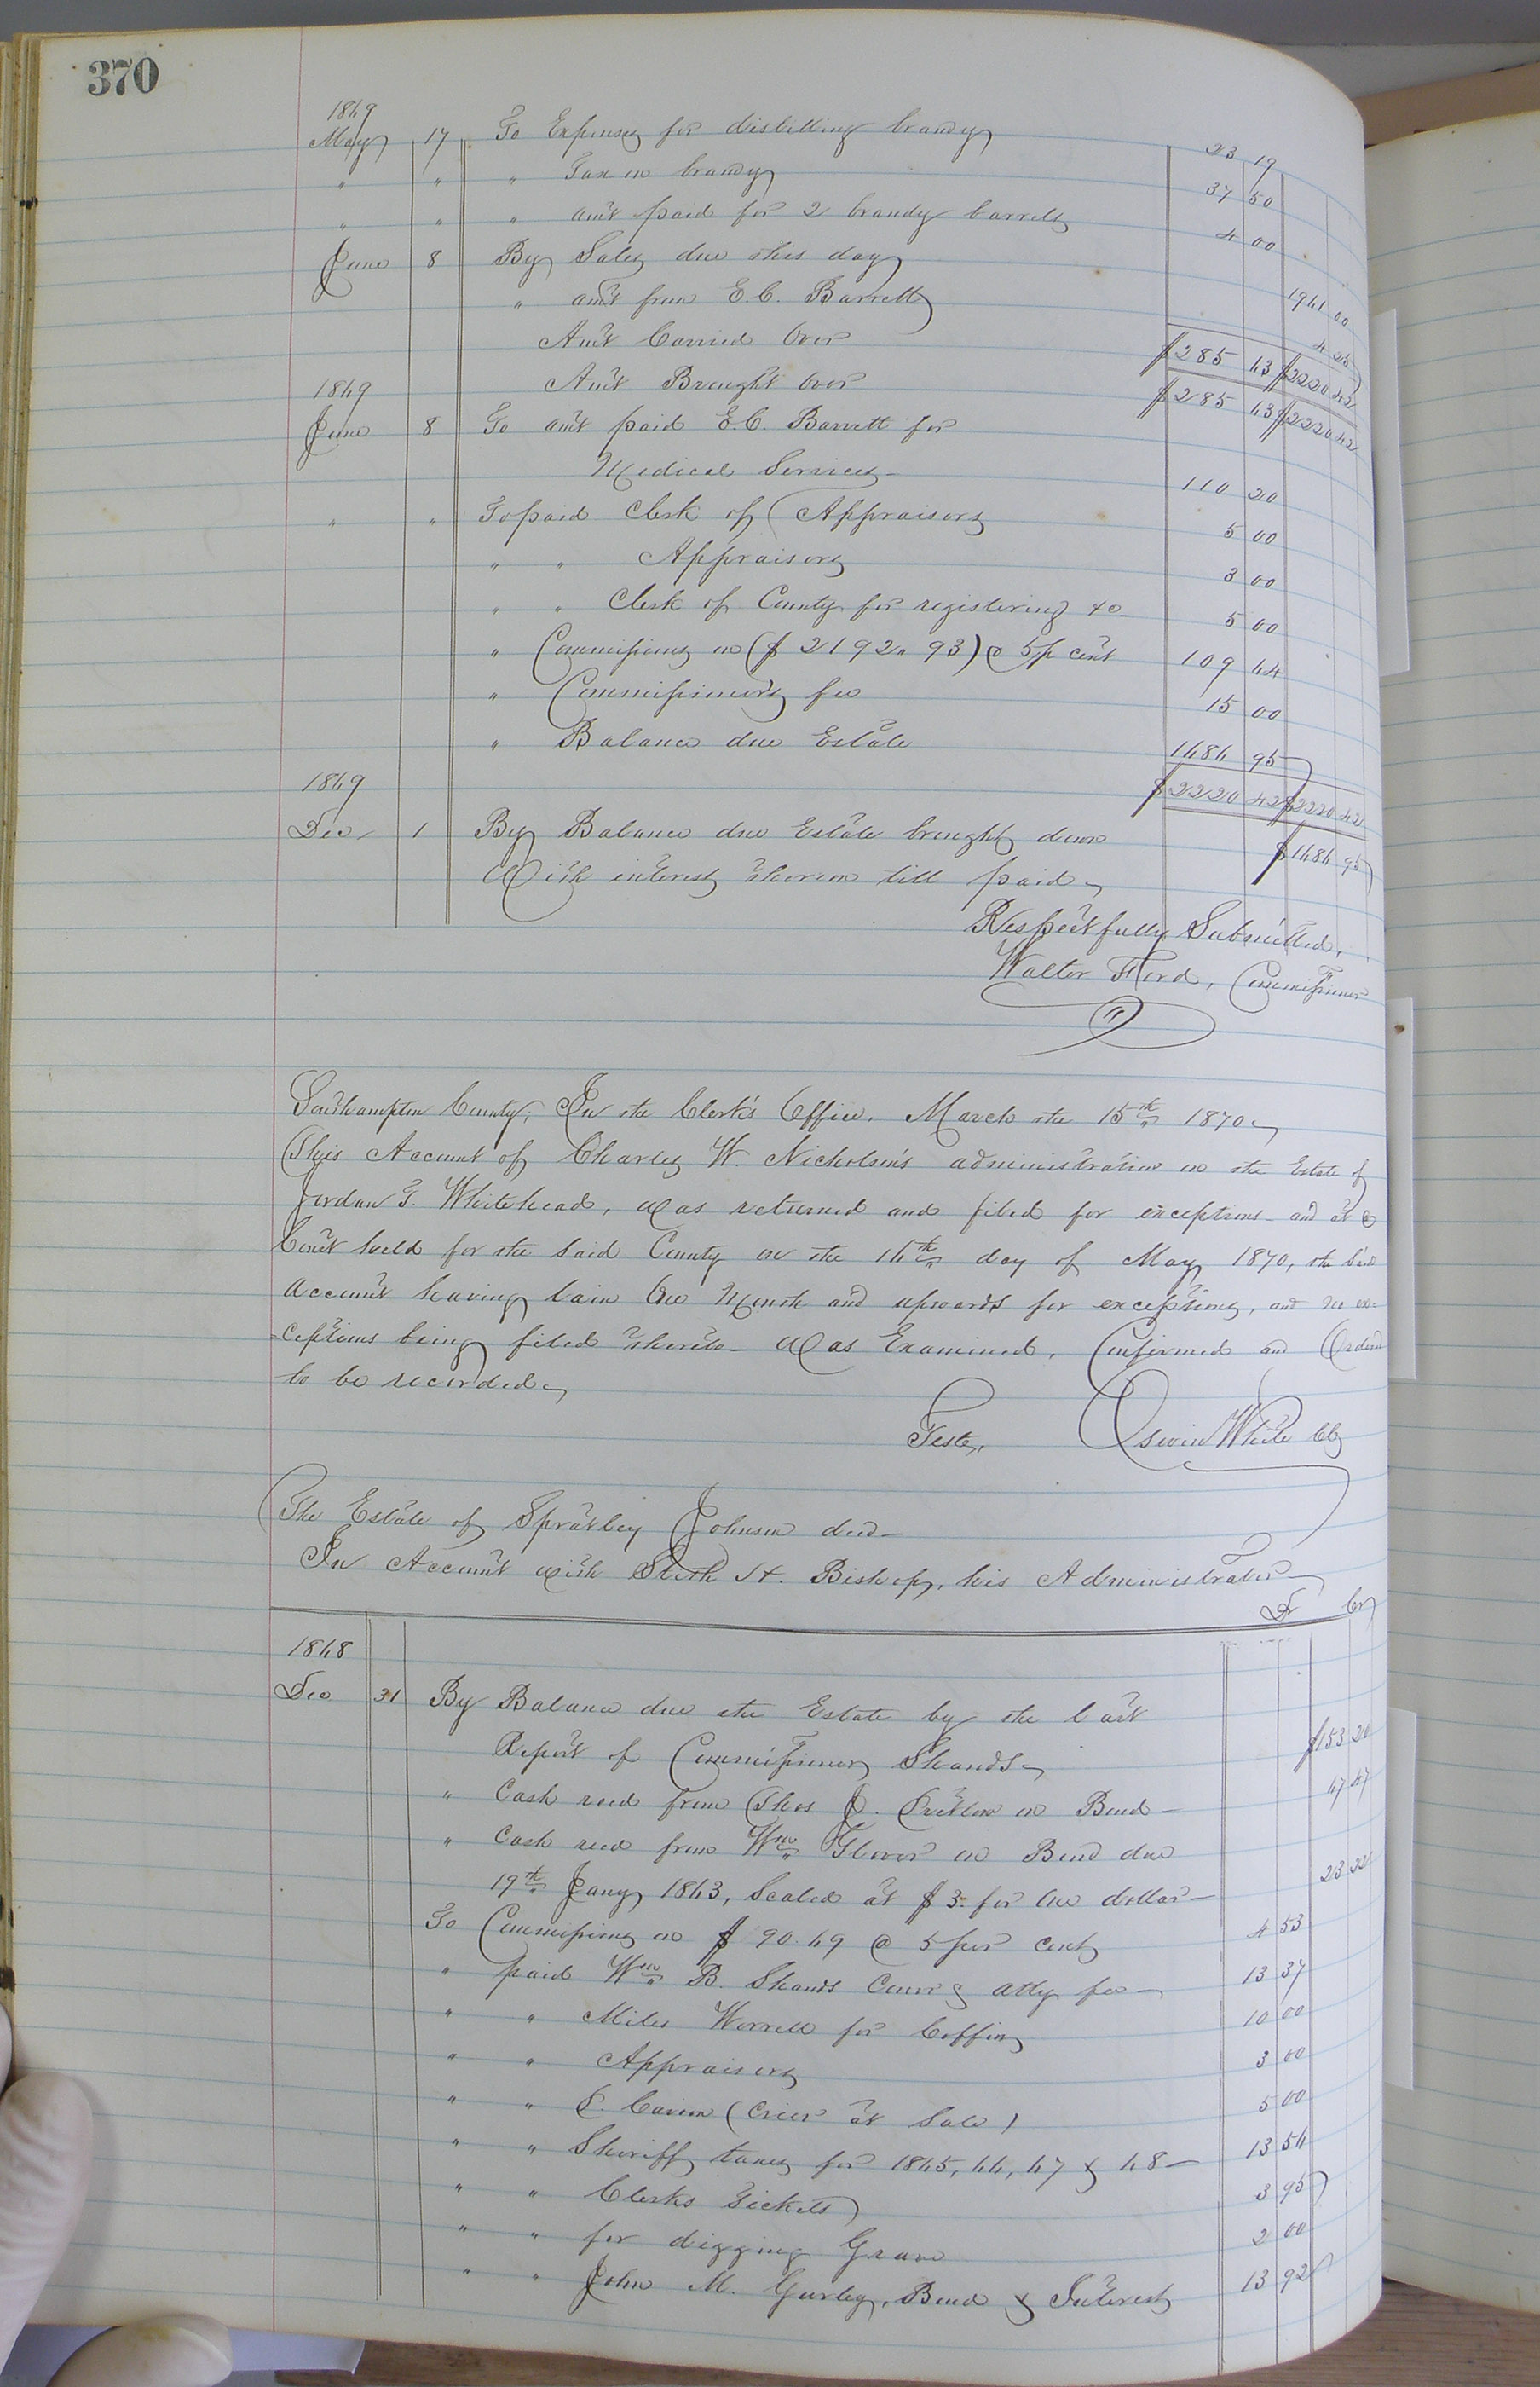 370
1869
May 17 To Expenses for distilling brandy 23 19
" " " Tax on brandy 37 50
" " " am't paid for 2 brandy barrels 4 00
June 8 By Sales due this day 1961 00
" am't from E. C. Barrett 4 25
Am't Carried Over $285 63 $2220 42
1869 Am't Brought Over $285 63 $2220 42
June 8 To am't paid E. C. Barrett for
Medical Services 110 20
" " To paid Clerk of Appraisors 5 00
" " Appraisors 3 00
" " Clerk of County for registering &c 5 00
" Commissions on ($2192.93) @ 5 p cent 109 64
" Commissioner's fee 15 00
" Balance due Estate 1686 95
1869 $2220 42 $2220 42
Dec 1 By Balance due Estate brought down $1686 95
With interest thereon till paid
Respectfully Submitted,
Walter Ford, Commissioner
Southampton County, In the Clerk's Office, March the 15th 1870
This Account of Charles W. Nicholson's administration on the Estate of
Jordan T. Whitehead, was returned and filed for exceptions and at a
Court held for the said County on the 16th day of May 1870, the said
Account having lain One Month and upwards for exceptions, and no ex-
-ceptions being filed thereto Was Examined, Confirmed and Ordered
to be recorded
Teste, Oswin White Clk
The Estate of Spratley Johnson decd
In Account with Sloth H. Bishop, his Administrator
Dr Cr
1868
Dec 31 By Balance due the Estate by the last
Report of Commissioner Shands $153 20
" Cash recd from Thos J. Pretlow on Bond 67 47
" Cash recd from Wm Glover on Bond due
19th Jany 1863, Scaled at $3 for One dollar 23 22
To Commissions on $90.69 @ 5 per cent 4 53
" paid Wm B. Shands Comr & atty fee 13 37
" " Miles Worrell for Coffin 10 00
" " Appraisors 3 00
" " (Crier at Sale) 5 00
" " Sheriff taxes for 1865, 66, 67 & 68 13 56
" " Clerks Tickets 3 95
" " for digging Grave 2 00
" " John M. Gurley, Bond & Interest 13 92